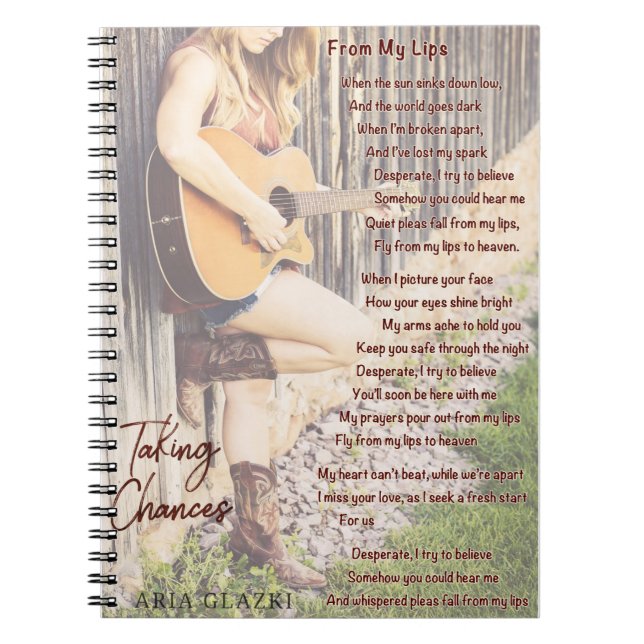 From My Lips
When the sun sinks down low,
And the world goes dark
When I'm broken apart,
And I've lost my spark
Desperate, I try to believe
Somehow you could hear me
Quiet pleas fall from my lips,
Fly from my lips to heaven.
When I picture your face
How your eyes shine bright
My arms ache to hold you
Keep you safe through the night
Desperate, I try to believe
You'll soon be here with me
My prayers pour out from my lips
Fly from my lips to heaven
My heart can't beat, while we're apart
I miss your love, as I seek a fresh start
For us
Desperate, I try to believe
Somehow you could hear me
And whispered pleas fall from my lips
Taking
Chances
ARIA GLAZKI